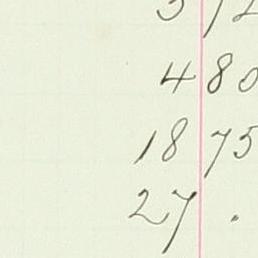 4 80
18 75
27 .